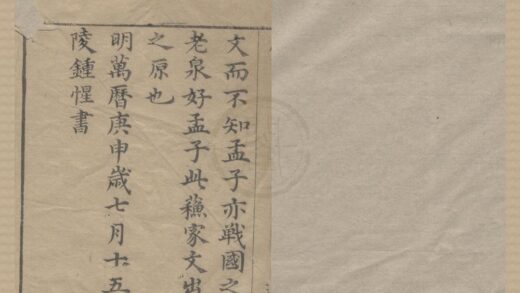 文而不知孟子亦戰國之
老泉好孟子此蘓家文出
之原也
明萬曆庚申歲七月十五
陵鍾惺書